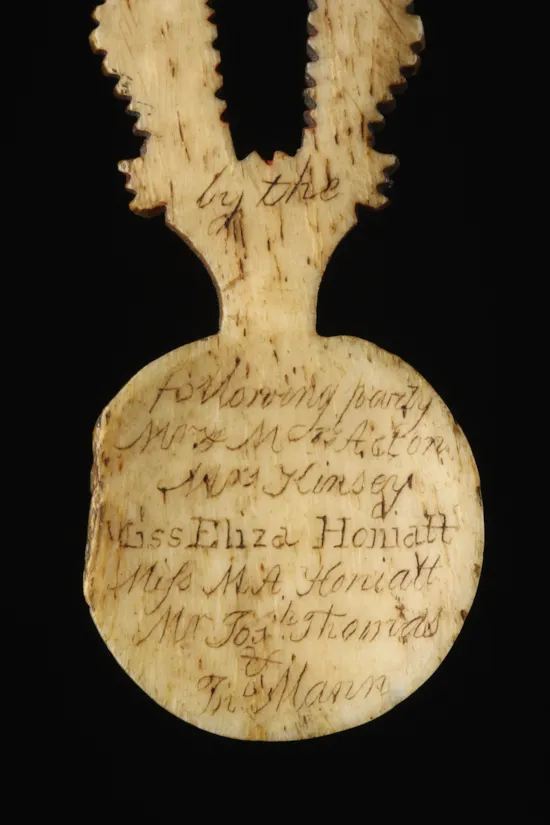 by the
following party
Mr & Mrs Acton
Mrs Kinsey
Miss Eliza Honiatt
Miſs M.A. Honiatt
Mr Josh. Thomas
&
Mann